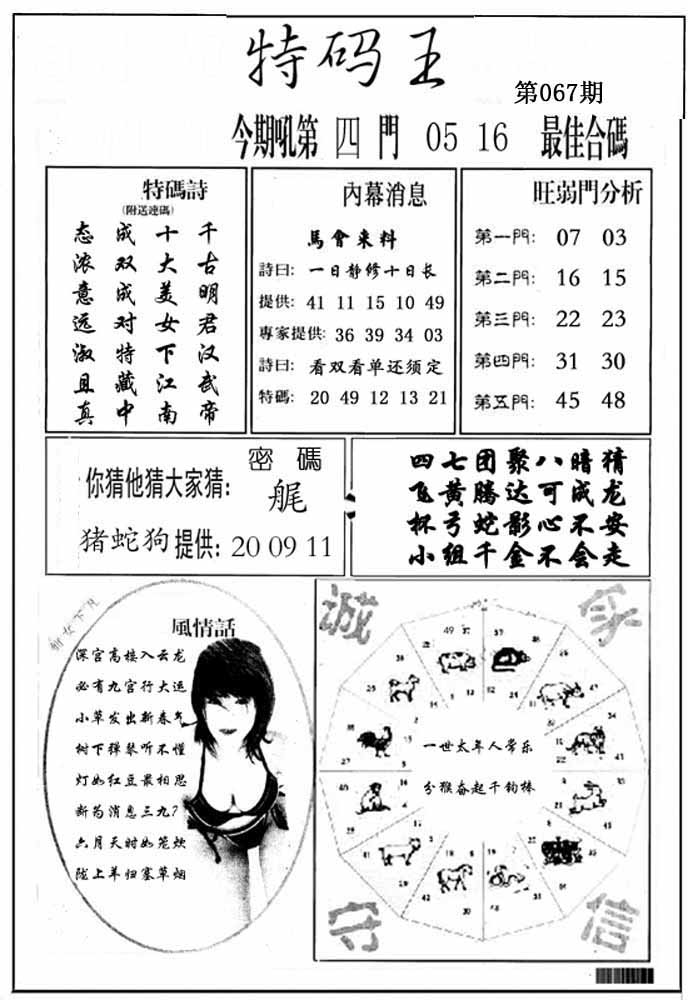 特码王
第067期
今期吼第四門 05 16 最佳合碼
特碼詩
(附送連碼)
态成十千
浓双大古
意成美明
远对女君
淑特下汉
且藏江武
真中南帝
內幕消息
馬會来料
詩曰: 一日静修十日长
提供: 41 11 15 10 49
專家提供: 36 39 34 03
詩曰: 看双看单还须定
特碼: 20 49 12 13 21
旺弱門分析
第一門: 07 03
第二門: 16 15
第三門: 22 23
第四門: 31 30
第五門: 45 48
密碼
你猜他猜大家猜: 艉
猪蛇狗提供: 20 09 11
四七团聚八暗猜
飞黄腾达可成龙
杯弓蛇影心不安
小组千金不会走
女下凡
風情話
深宫高楼入云龙
必有九宫行大运
小草发出新春气
树下弹琴听不懂
灯如红豆最相思
断药消息三九7
六月天时如笼炊
陇上羊归塞草烟
诚
家
守
信
一世太年人常乐
分猴奋起千钧棒